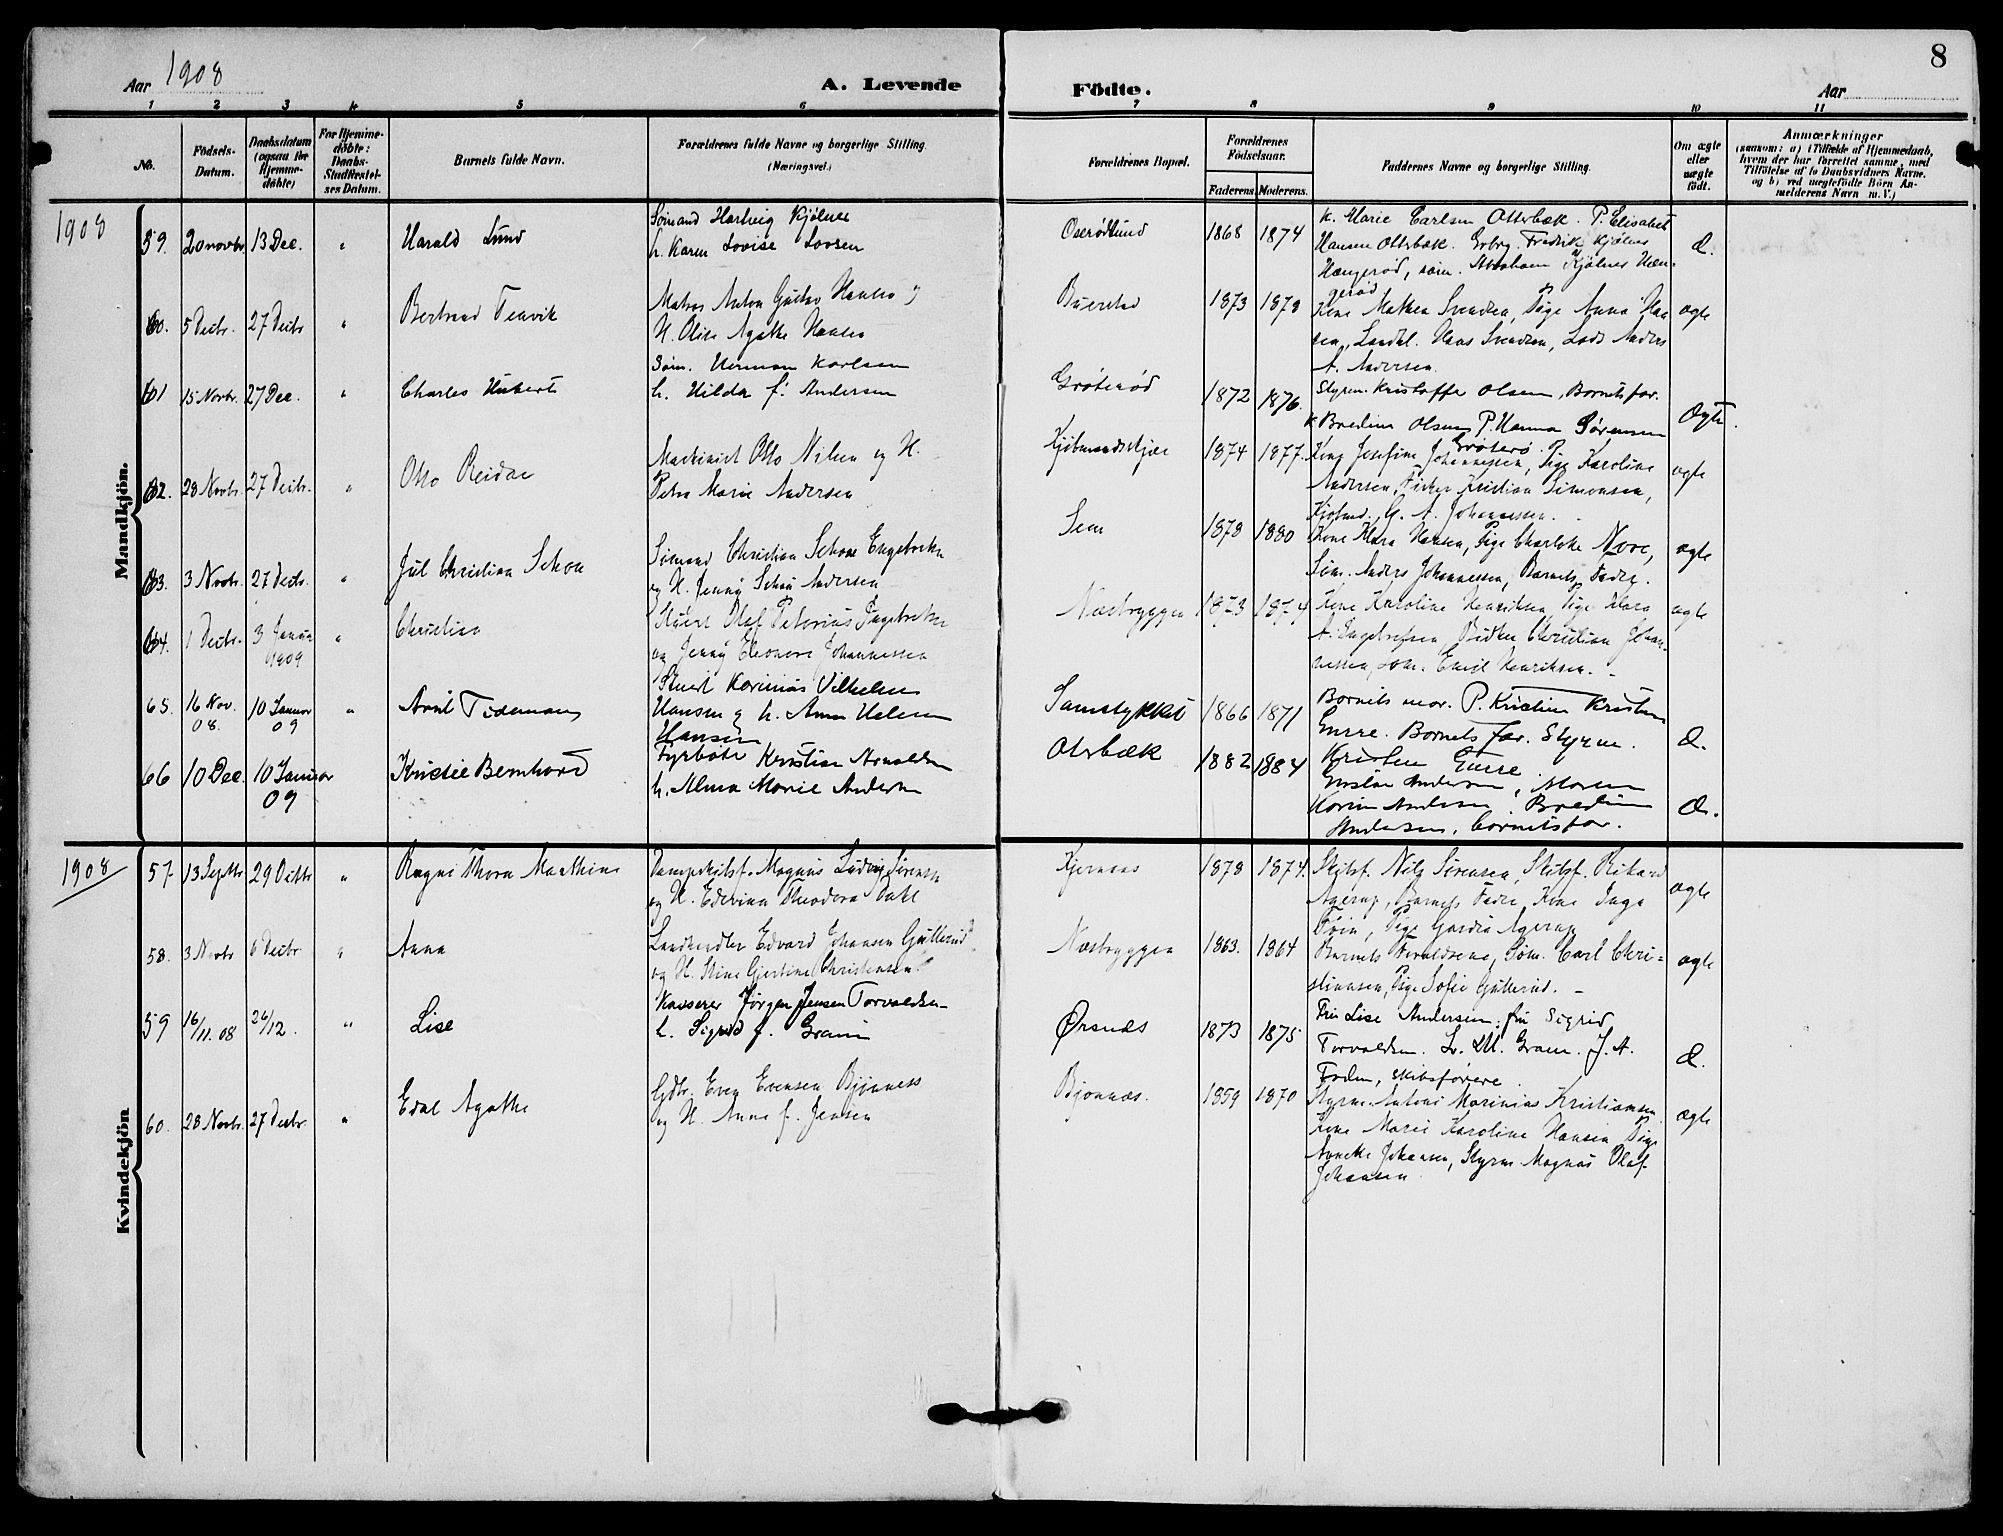 8
Aar 1908
A. Levende
Födte.
Aar
1 2 3 4 5 6 7 8 9 10 11
No.
Födsels-
Datum.
Daabsdatum
(ogsaa for
Hjemme-
döbte)
For Hjemme-
döbte:
Daabs-
Stadfæstel-
ses Datum.
Barnets fulde Navn.
Forældrenes fulde Navne og borgerlige Stilling
(Næringsvei.)
Forældrenes Bopæl.
Forældrenes
Födselsaar.
Faderens Moderens.
Faddernes Navne og borgerlige Stilling.
Om ægte
eller
uægte
födt.
Anmærkninger
(saasom: a) i Tilfælde af Hjemmedaab,
hvem der har forrettet samme, med
Tilföielse af to Daabsvidners Navne.
og b) ved uægtefödte Börn An-
melderens Navn m. V.)
1908
Mandkjön.
59. 20 novbr. 13 Dec. " Harald Lund
Sømand Hartvig Kjølner
h. Karen Lovise Lovsen
Oserødlund 1868 1874
K. Marie Carlsen Otterbæk. P. Elisabet
Hansen Otterbæk. Fredrik Kjølner
Hængerød, søm. Abraham Kjølner Hæn-
gerød
Æ.
60. 5 Decbr. 27 Decbr. " Bertrand Tenvik
Matros Anton Gustav Hansen og
H. Oline Agathe Hansen
Buerstad 1873 1878
Kone Mathea Svendsen, Pige Anna Han
sen, Landhl. Hans Svendsen, Lods Anders
A. Andersen.
ægte
61 15 Novbr. 27 Dec. " Charles Hubert
Søm. Herman Karlsen
h. Hilda f. Andersen
Grøterød 1872 1876.
Styrm. Kristoffer Olsen, Barnets far.
K Bredine Olsen P. Hanna Sørensen
Grøterø
Ægte.
62. 28 Novbr. 27 Decbr. " Otto Reidar
Maskinist Otto Nilsen og H.
Petra Marie Andersen
Kjøbmandskjær 1874 1877.
Kone Josefine Johannessen, Pige Karoline
Andersen, Fisker Kristian Simonsen,
Kjøbmd. G. A. Johannessen.
ægte
63. 3 Novbr. 27 Decbr. " Jul Christian Schou
Sømand Christian Schou Engebretsen
og H. Jenny Schou Andersen
Sem 1878 1880
Kone Klara Hansen, Pige Charlotte
Søm. Anders Johannessen, Barnets Fader.
ægte
64. 1 Decbr. 3 Januar 1909 " Christian
Stuert Olaf Petorius Engebretsen
og Jenny Eleonore Johannessen
Næsbryggen 1873 1874
Kone Karoline Henriksen, Pige Klara
A. Engebretsen, Christian Johan-
nessen, Søm. Emil Henriksen.
ægte
65. 16 Nov. 08. 10 Januar 09 " Arnt Tideman
Stuert Karinius Vilhelm
Hansen og h. Anna Helene
Hansen
Sanstykket 1866 1871
Barnets mor. P. Kristine Kristen
Barnets far. Styrm.
Kristen
Æ.
66 10 Dec. 10 Januar 09 Bernhard
Fyrbøter Kristian Arnoldsen
h. Alma Marie Andersen
Oterbæk 1882 1884
Gustav Andersen, Maren
Karin Andersen Bredine
Andersen, barnets far.
Æ.
1908
Kvindekjön
57. 13 Septbr 29 Decbr " Ragni Thora Maathine
Dampskibsf. Magnus Ludvig Sørensen
og H. Edevina Theodora Dahl
Kjernaas 1878 1874.
Skibsf. Nils Sørensen, Skibsf. Rikard
Agerup, Barnets Fader, Kone Inga
Föin, Pige Gerda Agerup
ægte
58. 3 Novbr 6 Decbr " Anna
Landhandler Edvard Johansen Gullerud
og H. Stine Gjertine Christensen.
Næsbryggen 1863. 1864
Barnets Forældrene, Søm. Carl Chri-
stiansen, Pige Sofie Gullerud. —
ægte
59 16/11. 08 26/12. " Lise
Kasserer Jørgen Jensen Torvaldsen
h. Sigrid f. Gram
Ørsnes 1873 1875
Fru Lise Andersen, fru Sigrid
Torvaldsen. Gram. J. A.
Foden, skibsfører.
Æ.
60. 28 Novbr. 27 Decbr. " Edel Agathe
Gdbr. Even Evensen Bjønnes
og H. Anna f. Jensen
Bjønnæs. 1859 1870
Styrm. Antoni Marinius Kristiansen
Kone Marie Karoline Hansen Pige
Annette Johansen, Styrm. Magnus Olaf
Johansen
ægte